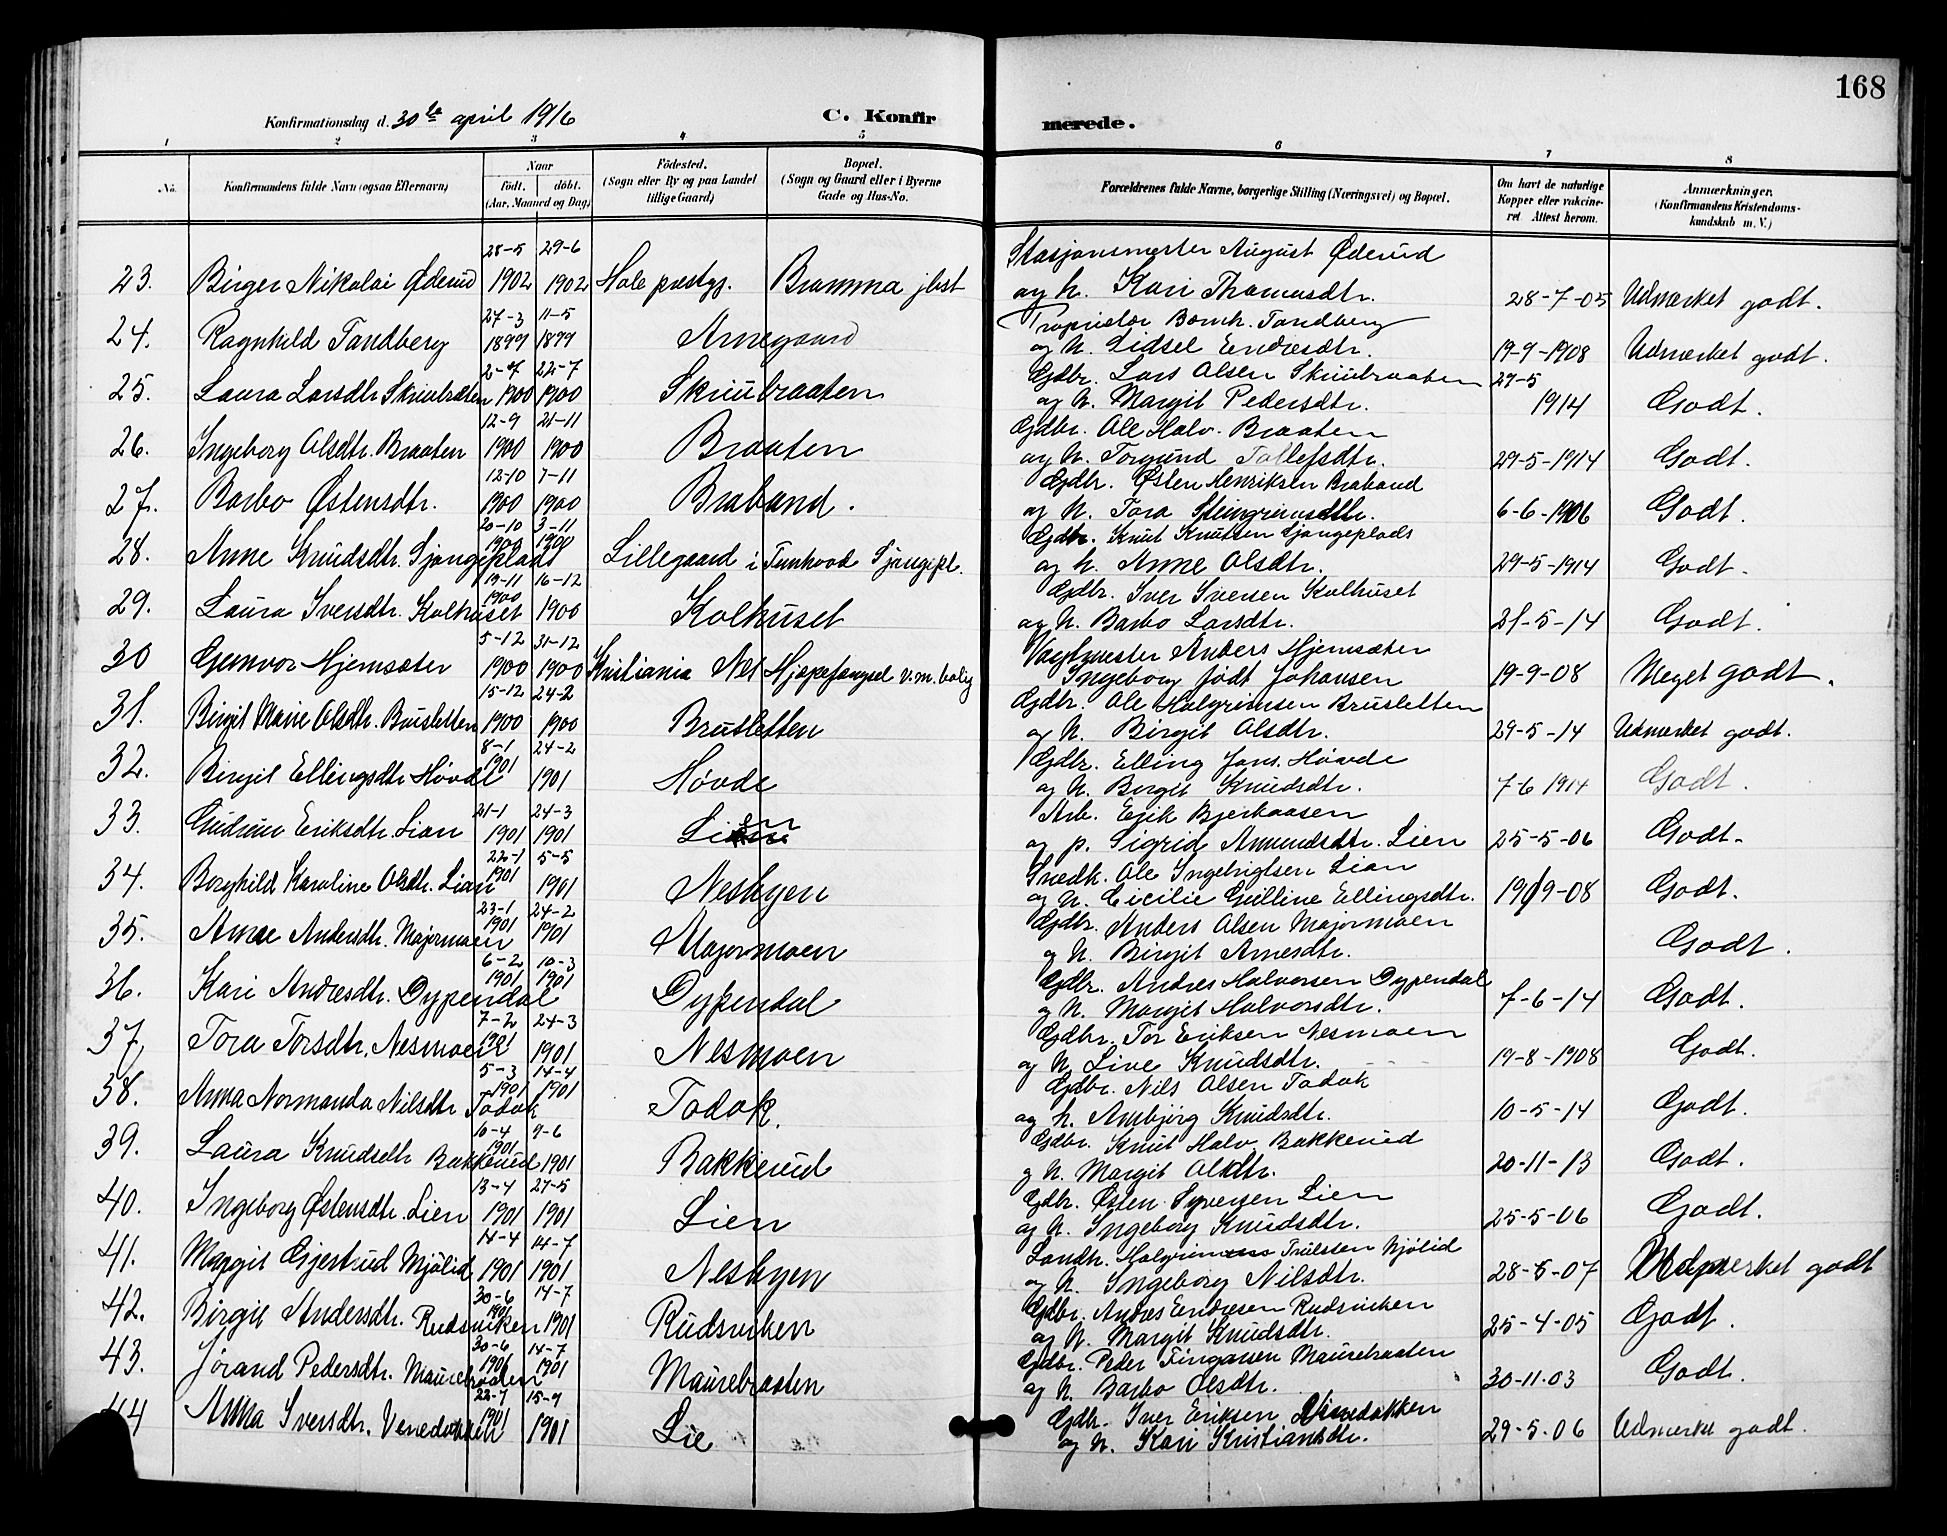 168
Konfirmationsdag d. 30te april 1916 C. Konfir merede.
1 2 3 4 5 6 7 8
No. Konfirmandens fulde Navn (ogsaa Efternavn) Naar født. døbt. (Aar, Maaned og Dag) Fødested. (Sogn eller By og paa Landet tillige Gaard) Bopæl. (Sogn og Gaard eller i Byerne Gade og Hus-No. Forældrenes fulde Navne, borgerlige Stilling (Næringsvei) og Bopæl. Om havt de naturlige Kopper eller vakcineret Attest herom. Anmærkninger. (Konfirmandens Kristendomskundskab m. V.)
28-5 29-6 Stasjonsmester August Øderud
23. Birger Nikolai Øderud 1902 1902 Hole prestgj. Bromma jbst og h. Kari Thomasdtr. 28-7-05 Udmerket godt.
27-3 11-5 Proprietær Bernh. Tandberg
24. Ragnhild Tandberg 1899 1899 Arnegaard og h. Sidsel Endresdtr. 19-9-1908 Udmerket godt.
2-7 22-7 Gdbr. Lars Olsen Skrubraaten 29-5
25. Laura Larsdtr Skrubraaten 1900 1900 Skrubraaten og h. Margit Pedersdtr. 1914 Godt.
12-9 21-11 Gdbr. Ole Halv. Braaten
26. Ingeborg Olsdtr. Braaten 1900 1900 Braaten og h. Torgund Tollefsdtr. 29-5-1914 Godt.
12-10 7-11 Gdbr. Østen Henriksen Braband
27. Barbo Østensdtr. 1900 1900 Braband. og h. Tora Steingrimsdtr. 6-6-1906 Godt.
20-10 3-11 Gdbr. Knut Knutsen Sjongeplads
28. Anne Knudsdtr. Sjongeplads 1900 1900 Lillegaard i Tunhovd Sjongepl. og h. Anne Olsdtr. 29-5-1914 Godt.
19-11 16-12 Gdbr. Iver Iversen Kolhuset
29. Laura Iversdtr. Kolhuset 1900 1900 Kolhuset og h. Barbo Larsdtr. 21-5-14 Godt.
5-12 31-12 Vagtmester Anders Hjemsæter
30 Gunvor Hjemsæter 1900 1900 Kristiania Nes Hjelpefengsel v.m. bolig Ingeborg født Johansen 19-9-08 Meget godt.
15-12 24-2 Gdbr. Ole Halgrimsen Brusletten
31. Birgit Marie Olsdtr. Brusletten 1900 1900 Brusletten og h. Birgit Olsdtr. 29-5-14 Udmerket godt.
8-1 24-2 Gdbr. Elling Jans. Høvde
32. Birgit Ellingsdtr Høvde 1901 1901 Høvde og h. Birgit Knudsdtr. 7-6 1914 Godt.
21-1 24-3 Arb. Erik Bjerkaasen
33. Gudrun Eriksdtr. Lian 1901 1901 Lien og p. Sigrid Amundsdtr. Lien 25-5-06 Godt.
22-1 5-5 Snedk. Ole Ingebrigtsen Lian
34. Borghild Karoline Olsdtr. Lian 1901 1901 Nesbyen og h. Cicilie Gulline Ellingsdtr. 19-9-08 Godt.
23-1 24-2 Gdbr. Anders Olsen Majormoen
35. Anne Andersdtr. Majormoen 1901 1901 Majormoen og h. Birgit Arnesdtr. Godt.
6-2 10-3 Gdbr. Andres Halvorsen Dypendal
36. Kari Andresdtr. Dypendal 1901 1901 Dypendal og h. Margit Halvorsdtr. 7-6-14 Godt.
7-2 24-3 Gdbr. Tor Eriksen Nesmoen
37. Tora Torsdtr. Nesmoen 1901 1901 Nesmoen og h. Live Knudsdtr. 19-8-1908 Godt.
5-3 14-4 Gdbr. Nils Olsen Todok
38. Anna Normanda Nilsdtr Todok 1901 1901 Todok. og h. Ambjørg Knudsdtr. 10-5-14 Godt.
10-4 9-6 Gdbr. Knut Halv Bakkerud
39. Laura Knudsdtr Bakkerud 1901 1901 Bakkerud og h. Margit Olsdtr. 20-11-13 Godt.
13-4 27-5 Gdbr. Østen Syversen Lien
40. Ingeborg Østensdtr. Lien 1901 1901 Lien og h. Ingeborg Knudsdtr. 25-5-06 Godt.
14-4 14-7 Landh. Halgrim Trulsten Mjølid
41. Margit Gjertrud Mjølid 1901 1901 Nesbyen og h. Ingeborg Nilsdtr. 28-5-07 Udmerket godt
30-6 14-7 Gdbr. Andres Endresen Rudsviken
42. Birgit Andersdtr. Rudsviken 1901 1901 Rudsviken og h. Margit Knudsdtr. 25-4-05 Godt.
30-6 14-7 Gdbr. Peder Fingarsen Maurebraaten
43. Jørand Pedersdtr. Maurebraaten 1901 1901 Maurebraaten og h. Barbo Olsdtr. 30-11-03 Godt.
22-7 15-9 Gdbr. Iver Eriksen Vinedokken
44 Anna Iversdtr. Venedokken 1901 1901 Lie og h. Kari Kristiansdtr. 29-5-06 Udmerket godt.